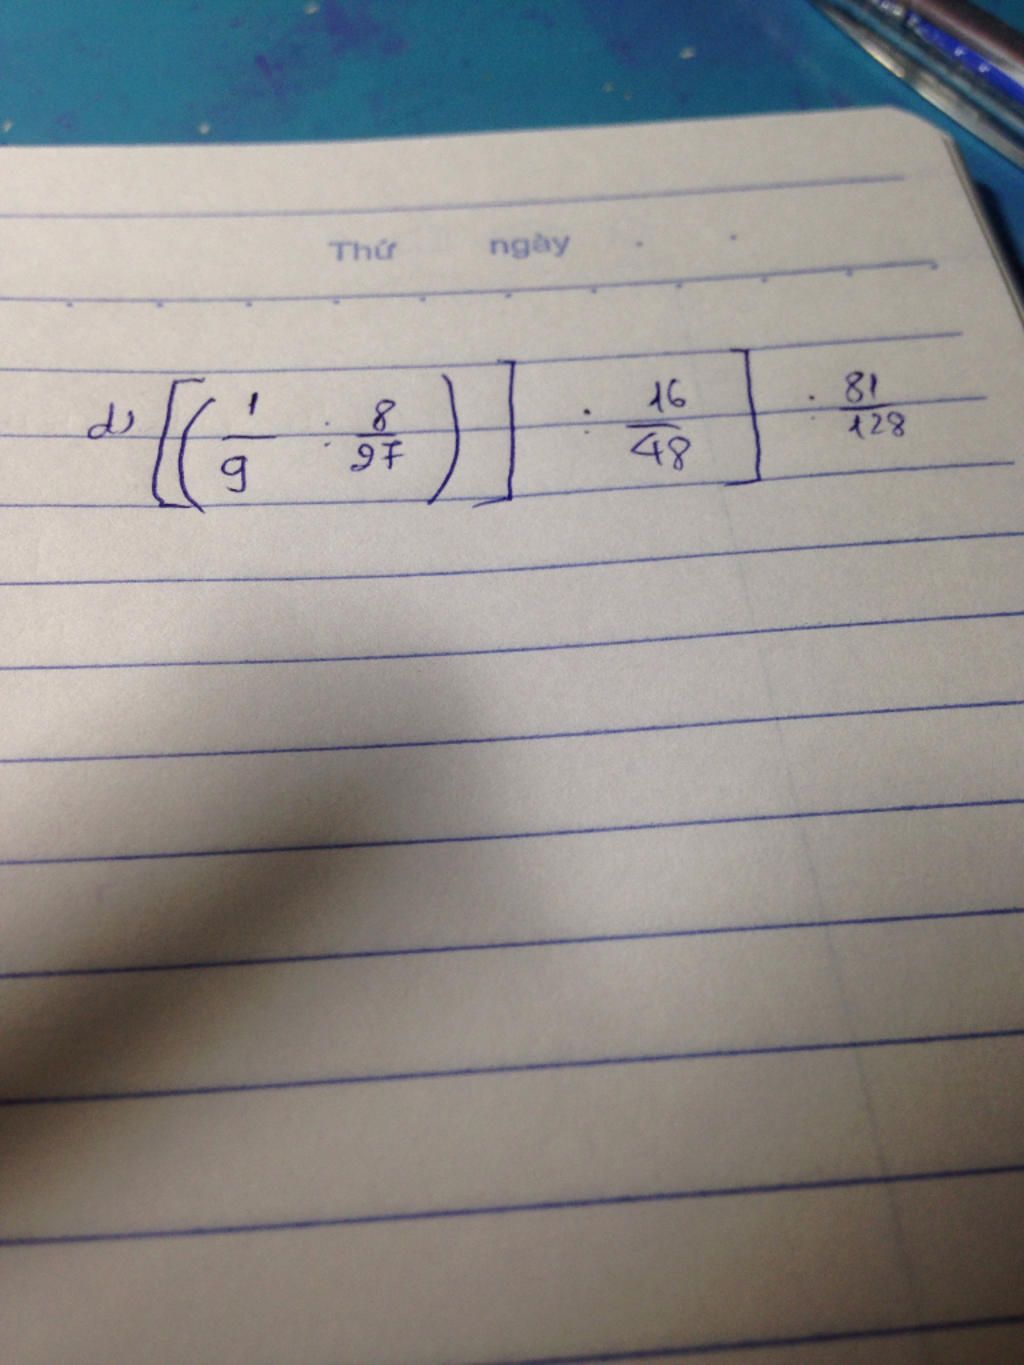 Thứ ngày
d) [(1/9 : 8/27)] : 16/48] : 81/128